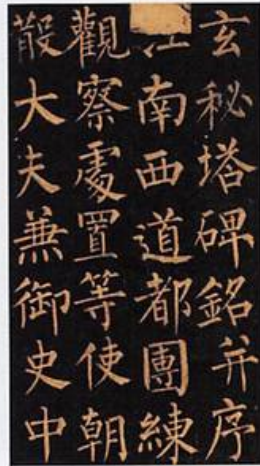 玄秘塔碑銘并序
江南西道都團練
觀察處置等使朝
散大夫兼御史中